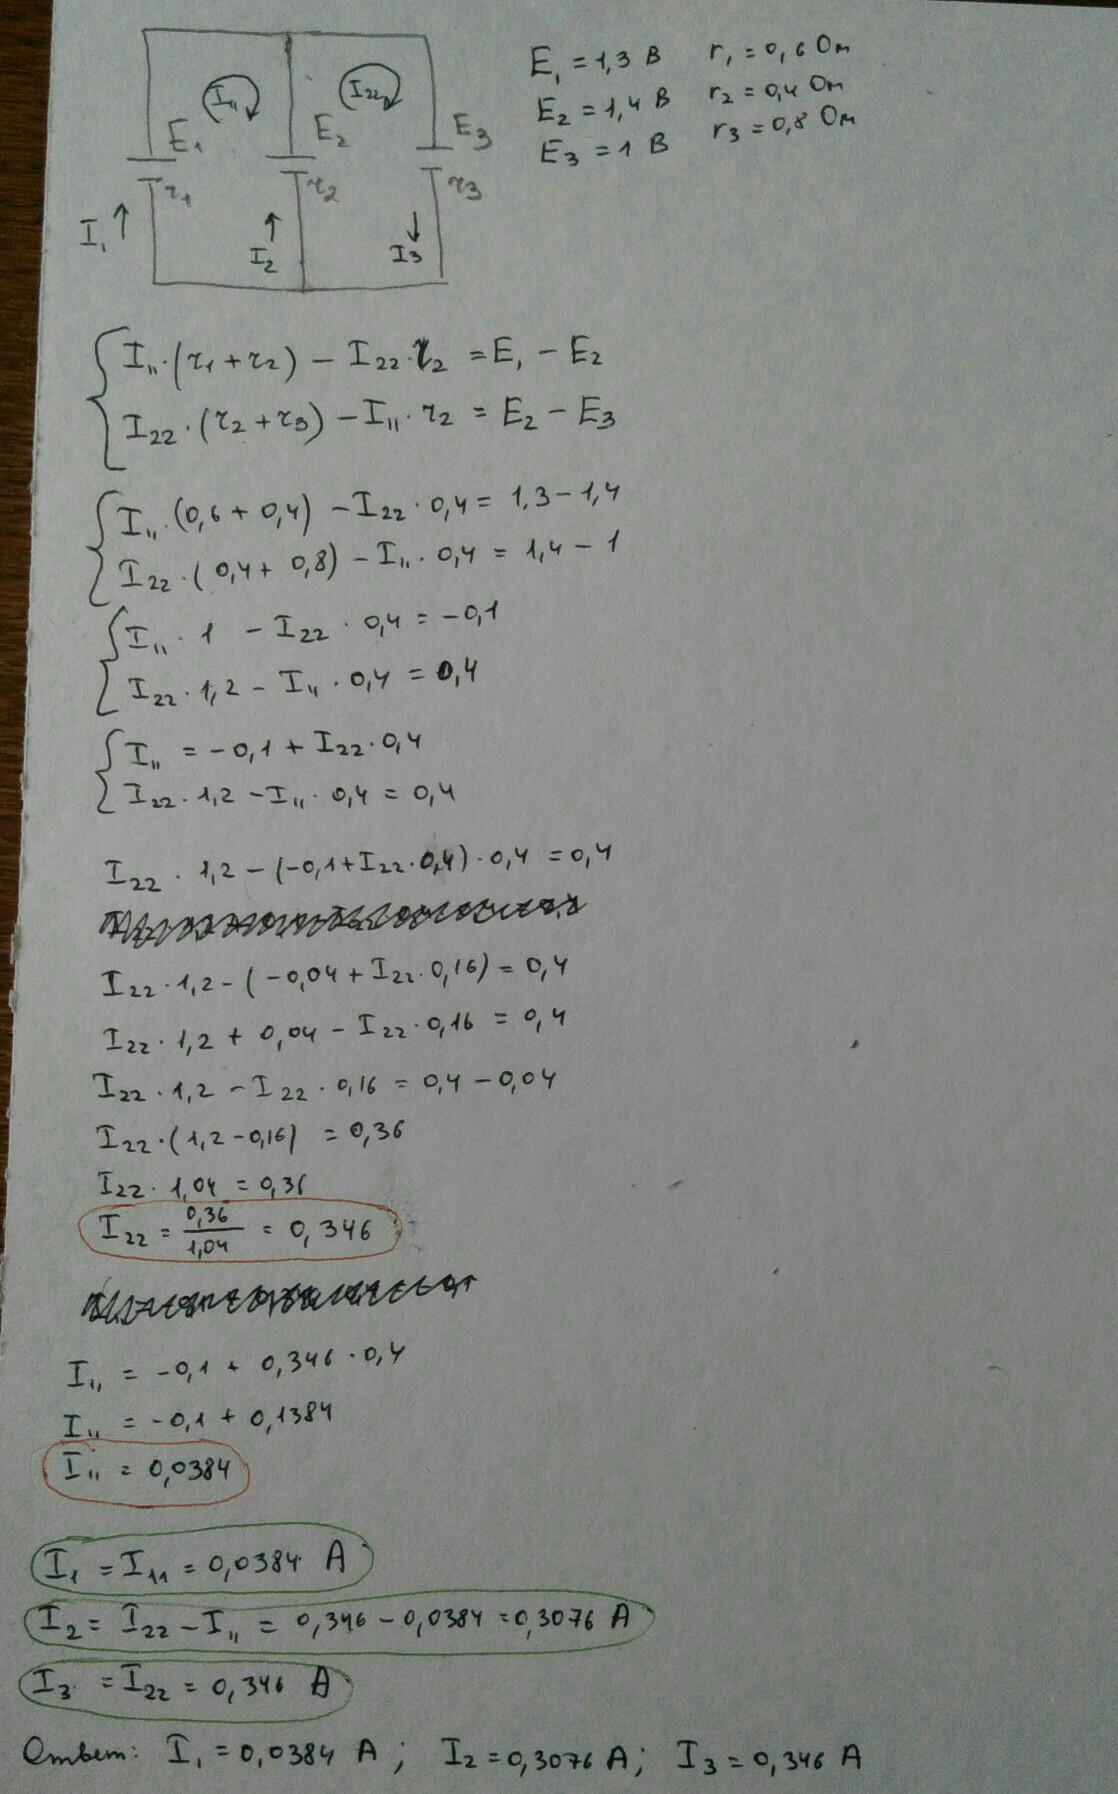 E₁ = 1,3 В r₁ = 0,6 Ом
E₂ = 1,4 В r₂ = 0,4 Ом
E₃ = 1 В r₃ = 0,8 Ом
I₁₁ I₂₂
E₁ E₂ E₃
r₁ r₂ r₃
I₁ ↑ ↑ I₂ ↓ I₃
I₁₁·(r₁ + r₂) – I₂₂·r₂ = E₁ – E₂
I₂₂·(r₂ + r₃) – I₁₁·r₂ = E₂ – E₃
I₁₁·(0,6 + 0,4) – I₂₂·0,4 = 1,3 – 1,4
I₂₂·(0,4 + 0,8) – I₁₁·0,4 = 1,4 – 1
I₁₁·1 – I₂₂·0,4 = –0,1
I₂₂·1,2 – I₁₁·0,4 = 0,4
I₁₁ = –0,1 + I₂₂·0,4
I₂₂·1,2 – I₁₁·0,4 = 0,4
I₂₂·1,2 – (–0,1 + I₂₂·0,4)·0,4 = 0,4
I₂₂·1,2 – (–0,04 + I₂₂·0,16) = 0,4
I₂₂·1,2 + 0,04 – I₂₂·0,16 = 0,4
I₂₂·1,2 – I₂₂·0,16 = 0,4 – 0,04
I₂₂·(1,2 – 0,16) = 0,36
I₂₂·1,04 = 0,36
I₂₂ = 0,36/1,04 = 0,346
I₁₁ = –0,1 + 0,346·0,4
I₁₁ = –0,1 + 0,1384
I₁₁ = 0,0384
I₁ = I₁₁ = 0,0384 А
I₂ = I₂₂ – I₁₁ = 0,346 – 0,0384 = 0,3076 А
I₃ = I₂₂ = 0,346 А
Ответ: I₁ = 0,0384 А; I₂ = 0,3076 А; I₃ = 0,346 А